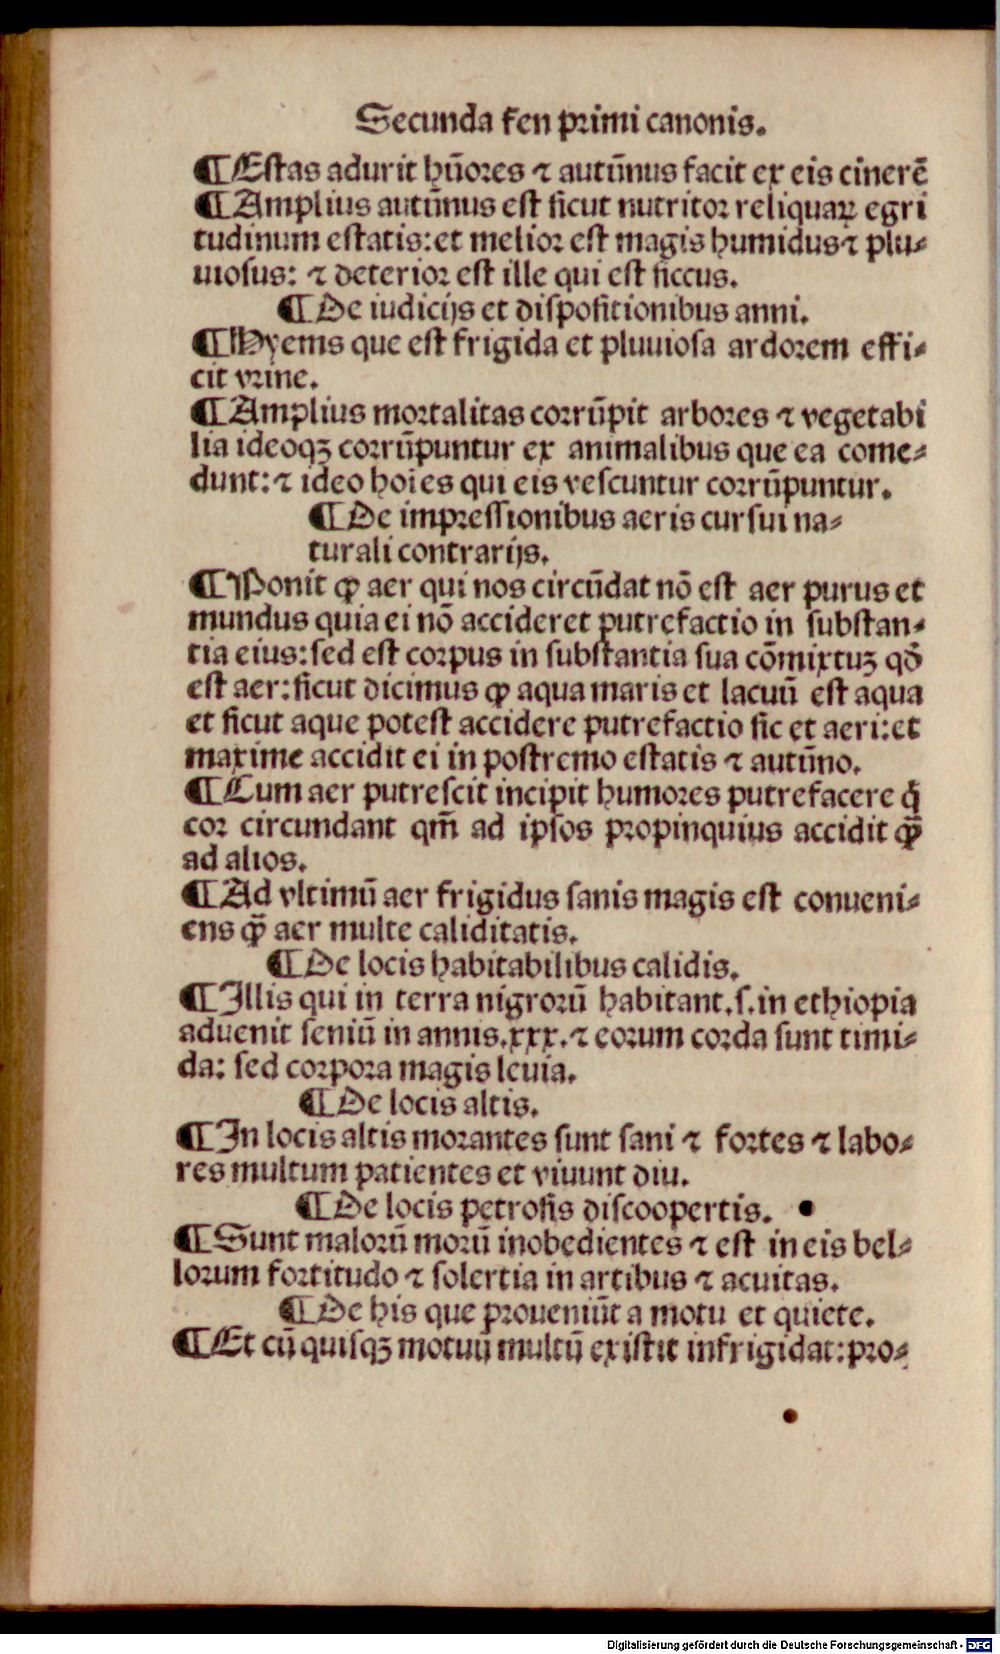 Secunda fen primi canonis.
¶ Estas adurit hūores ⁊ autūnus facit ex eis cinerē
¶ Amplius autūnus est sicut nutritor reliquaꝝ egri
tudinum estatis: et melior est magis humidus ⁊ plu⸗
uiosus: ⁊ deterior est ille qui est siccus.
¶ De iudicijs et dispositionibus anni.
¶ Hyems que est frigida et pluuiosa ardorem effi⸗
cit vrine.
¶ Amplius mortalitas corrūpit arbores ⁊ vegetabi
lia ideoqꝫ corrūpuntur ex animalibus que ea come⸗
dunt: ⁊ ideo hoies qui eis vescuntur corrūpuntur.
¶ De impressionibus aeris cursui na⸗
turali contrarijs.
¶ Ponit ꝙ aer qui nos circūdat nō est aer purus et
mundus quia ei nō accideret putrefactio in substan⸗
tia eius: sed est corpus in substantia sua cōmixtuꝫ qđ
est aer: sicut dicimus ꝙ aqua maris et lacuū est aqua
et sicut aque potest accidere putrefactio sic et aeri: et
maxime accidit ei in postremo estatis ⁊ autūno.
¶ Cum aer putrescit incipit humores putrefacere q̄
cor circundant qm̄ ad ipsos propinquius accidit ꝙ̄
ad alios.
¶ Ad vltimū aer frigidus sanis magis est conueni⸗
ens ꝙ̄ aer multe caliditatis.
¶ De locis habitabilibus calidis.
¶ Illis qui in terra nigrorū habitant .s. in ethiopia
aduenit seniū in annis .xxx. ⁊ eorum corda sunt timi⸗
da: sed corpora magis leuia.
¶ De locis altis.
¶ In locis altis morantes sunt sani ⁊ fortes ⁊ labo⸗
res multum patientes et viuunt diu.
¶ De locis petrosis discoopertis.
¶ Sunt malorū morū inobedientes ⁊ est in eis bel⸗
lorum fortitudo ⁊ solertia in artibus ⁊ acuitas.
¶ De his que proueniūt a motu et quiete.
¶ Et cū quisqꝫ motuū multū existit infrigidat: pro⸗
Digitalisierung gefördert durch die Deutsche Forschungsgemeinschaft - DFG